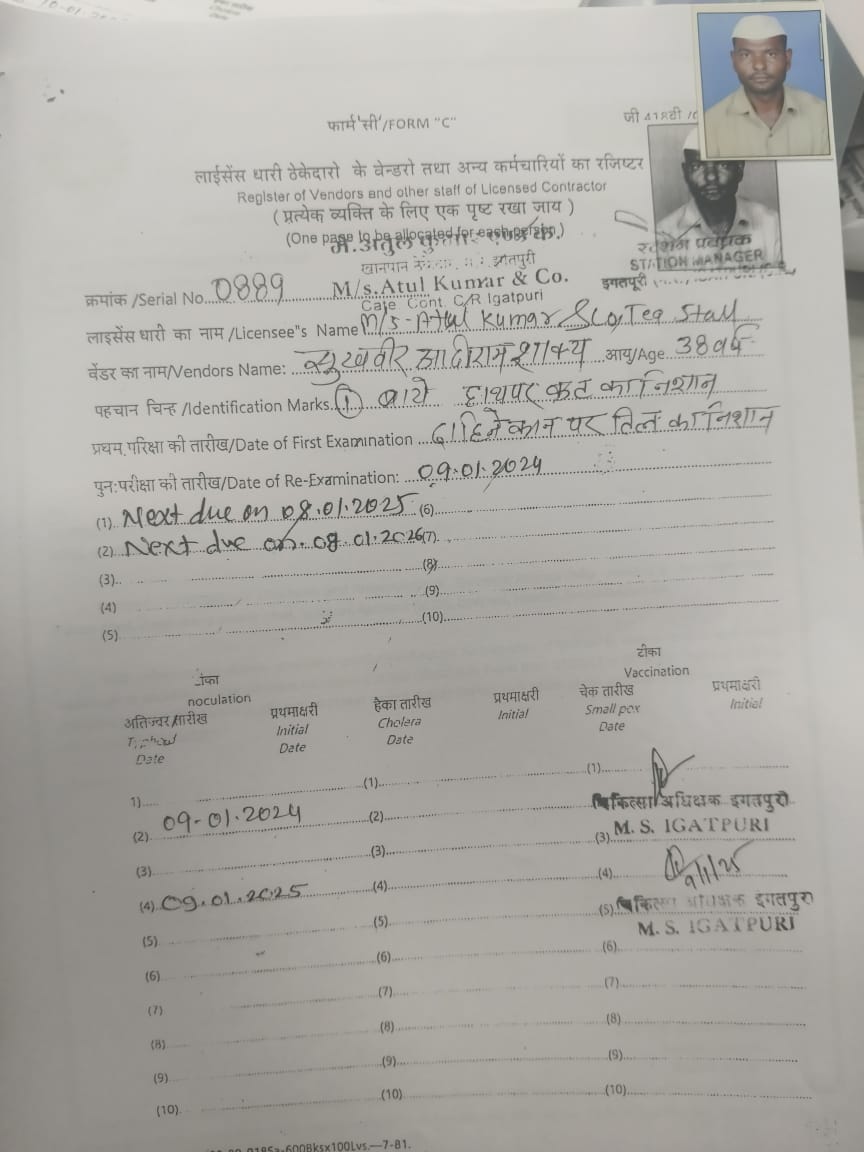 फार्म 'सी'/FORM "C"
जी 418वी
लाईसेंस धारी ठेकेदारो के वेन्डरो तथा अन्य कर्मचारियों का रजिष्टर
Register of Vendors and other staff of Licensed Contractor
( प्रत्येक व्यक्ति के लिए एक पृष्ट रखा जाय )
(One page to be allocated for each person.)
मे. अतुल कुमार एण्ड कं.
खानपान इगतपुरी
STATION MANAGER
इगतपूरी
M/s.Atul Kumar & Co.
क्रमांक /Serial No. 0889
Cate Cont. C/R Igatpuri
लाइसेंस धारी का नाम /Licensee"s Name M/s-Atul Kumar & Co, Tea Stall
वेंडर का नाम/Vendors Name: सुखवीर आदीराम शाक्य आयु/Age 38 वर्ष
पहचान चिन्ह /Identification Marks. (1) बाये हाथ पर कट का निशान
प्रथम परिक्षा की तारीख/Date of First Examination दाहिने कान पर तिल का निशान
पुन:परीक्षा की तारीख/Date of Re-Examination: 09.01.2024
(1) Next due on 08.01.2025 (6)
(2) Next due on 08.01.2026 (7)
(3) (8)
(4) (9)
(5) (10)
टीका
noculation Vaccination
अतिज्वर तारीख प्रथमाक्षरी हैका तारीख प्रथमाक्षरी चेक तारीख प्रथमाक्षरी
Initial Cholara Initial Small pox Initial
Date Date Date Date
1) (1) (1)
(2) 09-01.2024 (2) चिकित्सा अधिक्षक इगतपुरी
(3) (3) (3) M. S. IGATPURI
(4) 09.01.2025 (4) (4) 9/1/25
(5) (5) (5) चिकित्सा अधिक्षक इगतपुरी
M. S. IGATPURI
(6) (6) (6)
(7) (7) (7)
(8) (8) (8)
(9) (9) (9)
(10) (10) (10)
600Bksx100Lvs.—7-81.